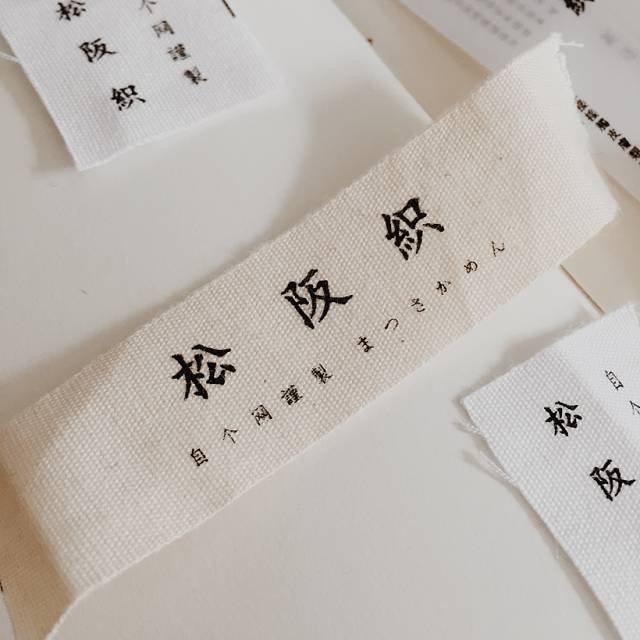 松阪織
自个网謹製 まつさかめん
松阪織
个网謹製
松阪
自